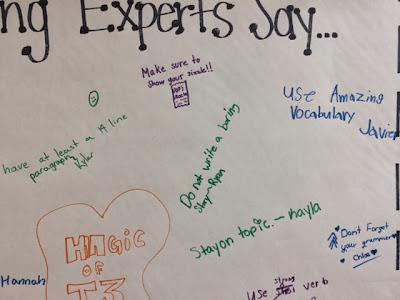 ng Experts Say...
Make sure to
show your sizzle!!
USE Amazing
Vocabulary
Javier
have at least a 14 line
paragraph
Kyler
Do not write a boring
Story-Ryan
Stay on topic.- Kayla
Don't Forget
your grammer
Chloe
MAGIC
OF
T3
Hannah
strong
USE verb